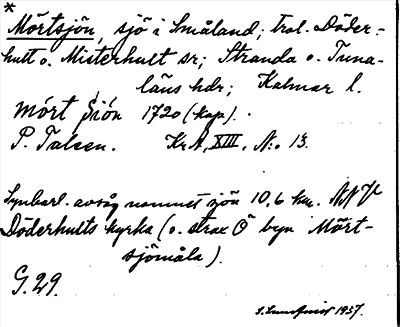 *
Mörtsjön, sjö i Småland; trol. Döder-
hult o. Misterhult sr; Stranda o. Tuna-
läns hdr; Kalmar l.
Mört Siön 1720 (kop).
P. Tal Kr A, XIII, N:o 13.
Synbarl. avsåg namnet sjön 10,6 km. NNV
Döderhults kyrka (o. strax Ö byn Mört-
sjömåla).
G. 29.
S. Lundqvist 1937.